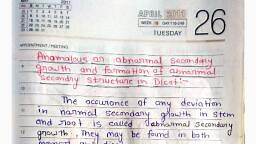 2011
APRIL 2011
26
TUESDAY
APPOINTMENT / MEETING
Anamolous or abnormal secondary
growth and formation of abnormal
secondry structure in Dicot:-
The occurance of any deviation
in normal secondary growth in stem
and root is called abnormal secondary
growth. They may be found in both